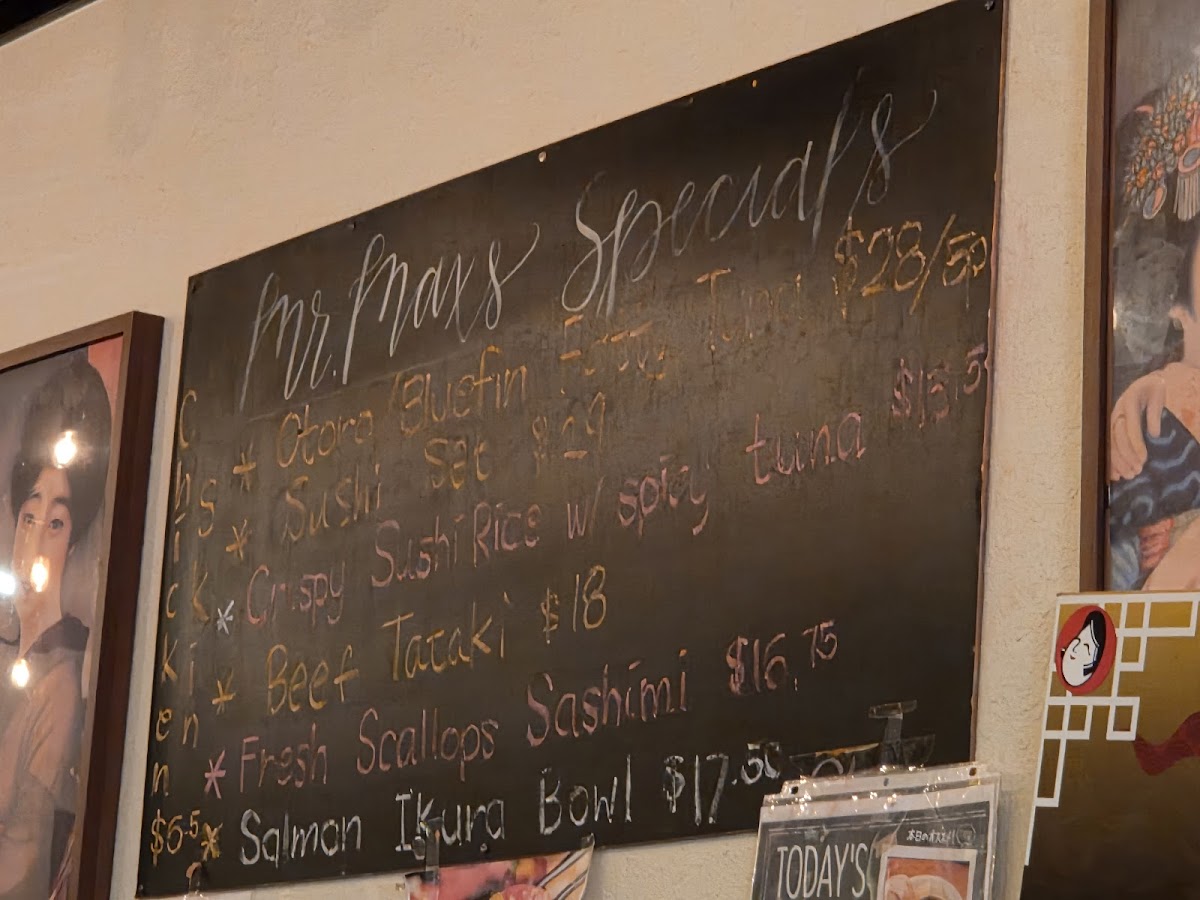 Mr. Maxs Special's
* Otoro/Bluefin Fatty Tuna $28/50
* Sushi Set $29
* Crispy Sushi Rice w/ spicy tuna $15.5
* Beef Tataki $18
* Fresh Scallops Sashimi $16.75
* Salmon Ikura Bowl $17.50
Chicken
Skin
$6.5
TODAY'S
本日のオススメ!